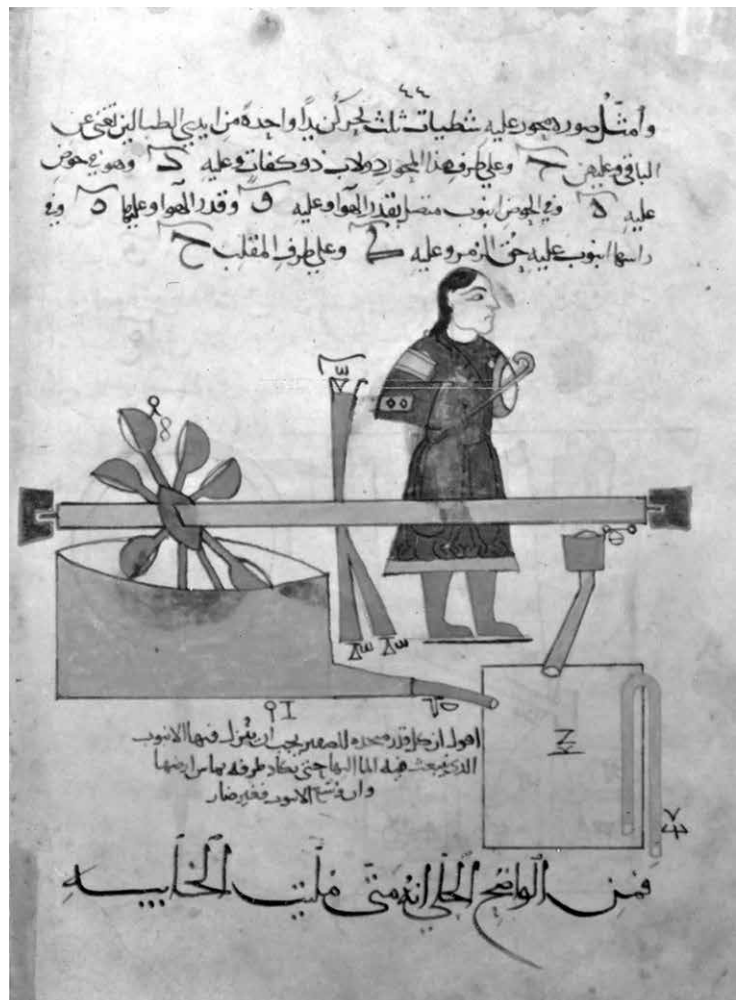 وأمثل صورة محور عليه شطيات ثلث لتحركن يدا واحدة من ايدي الطبالين تغنى عن
الباقى وعليهن ح وعلى طرف هذا المحور دولاب ذو كفات وعليه د وهو فى حوض
عليه ه وفى الحوض انبوب متصل بقدر الهوا وعليه و وقدر الهوا وعليها ه وفى
راسها انبوب عليه حق الزمر وعليه ك وعلى طرف المقلب ح
اقول ان كل قدر متخذة للصفير يجب ان ينزل فيها الانبوب
الذى ينبعث فيه الما اليها حتى يكاد طرفه يماس ارضها
وان الانبوب فغير ضار
فمن الواضح الجلى انه متى ملئت الخابيه